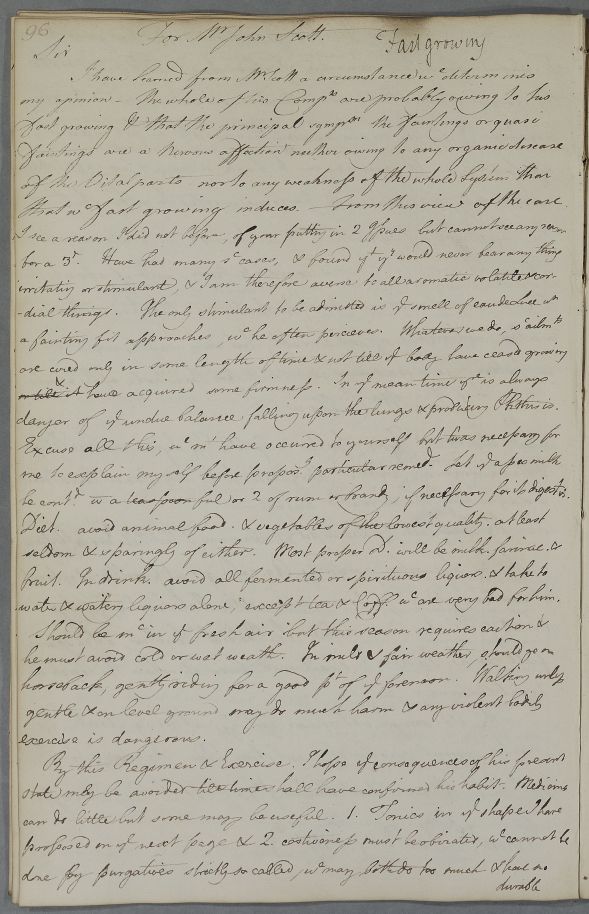 96
For Mr John Scott.
Fast growing
Sir
I have learned from Mr Scott a circumstance wc determines
my opinion - the whole of his Compts are probably owing to his
fast growing & that the principal symptm the faintings or quasi
faintings are a nervous affection neither owing to any organic disease
of the Vital parts nor to any weakness of the whole System than
that wc fast growing induces. — From this view of the case
I see a reason I did not before, of your putting in 2 Issues but cannot see any reason
for a 3d. Have had many sc cases, & found yt yy would never bear any thing
irritating or stimulant, & I am therefore averse to all aromatic volatile & cor-
-dial things. The only stimulant to be admitted is ye smell of eau de Luce wn
a fainting fit approaches, wc he often perceives. Whatever we do, sc ailmts
are cured only in some length of time & not till ye body have ceased growing
& have acquired some firmness. In ye mean time yre is always
danger of ye undue balance falling upon the lungs & producing Phthisis.
Excuse all this, wc mt have occurred to yourself but twas necessary for
me to explain myself before proposg particular remeds. Let ye asses milk
be contd w a teaspoonful or 2 of rum or brandy, if necessary for its digestn.
Diet. avoid animal food. & vegetables of the lowest quality. at least
seldom & sparingly of either. Most proper d. will be milk. farinac. &
fruit. In drink. avoid all fermented or spirituous liquors. & take to
water & watery liquors alone, except tea & Coff. wc are very bad for him.
Should be mc in ye fresh air but this season requires caution &
he must avoid cold or wet weath. In mild & fair weather, should go on
horseback, gently riding for a good pt of ye forenoon. Walking unless
gentle & on level ground may do much harm & any violent bodily
exercise is dangerous.
By this Regimen & Exercise. I hope ye consequences of his present
state may be avoided till time shall have confirmed his habit. Medicine
can do little but some may be useful. 1. Tonics in ye shape I have
proposed on ye next page & 2. costiveness must be obviated, wc cannot be
done by purgatives strictly so called, wc may both do too much & have no
durable